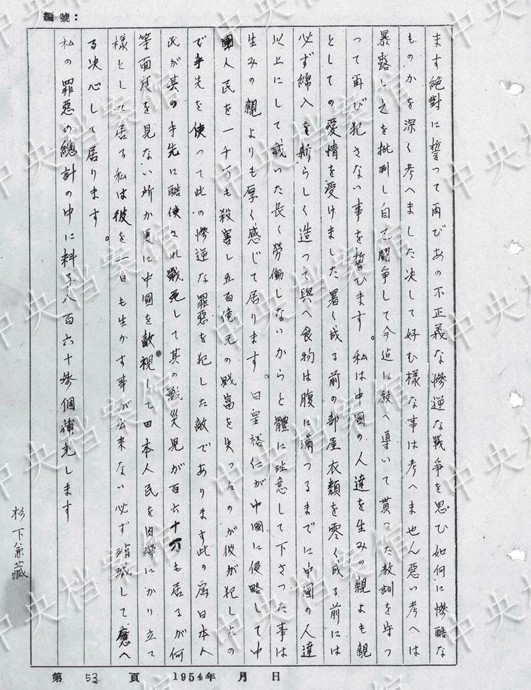 編號：
ます絶對に誓って再びあの不正義な慘逆な戰爭を思ひ如何に慘酷な
ものかを深く考へました決して好む様な事は考へません悪い考へは
暴露し之を批判し自己闘爭して今迄に教へ導いて貰った教訓を守
って再び犯さない事を誓ひます。私は中国の人達を生みの親よりも親
としての愛情を受けました暑く成る前の部屋衣類を寒く成る前には
必ず綿入を新らしく造って與へ食物は腹に満つるまでに中国の人達
以上にして戴いた長く労働しないからと體に注意して下さった事は
生みの親よりも厚く感じて居ります。日皇裕仁が中國に侵略して中
國人民を一千万も殺害し五百億元の財富を失ったのが彼が犯したの
で手先を使って此の慘逆な罪惡を犯した敵であります此の為日本人
民が其の手先に酷使され戰死して其の戰災児が百六十万も居るが何
等面倒を見ない所か更に中國を敵視して日本人民を肉彈にかり立て
様として居る私は彼を一日も生かす事が出来ない必ず消滅して應へ
る決心して居ります。
私の罪惡の總計の中に料子八百六十参個補充します
杉下兼藏
第 53 頁 1954年 月 日
中央档案馆